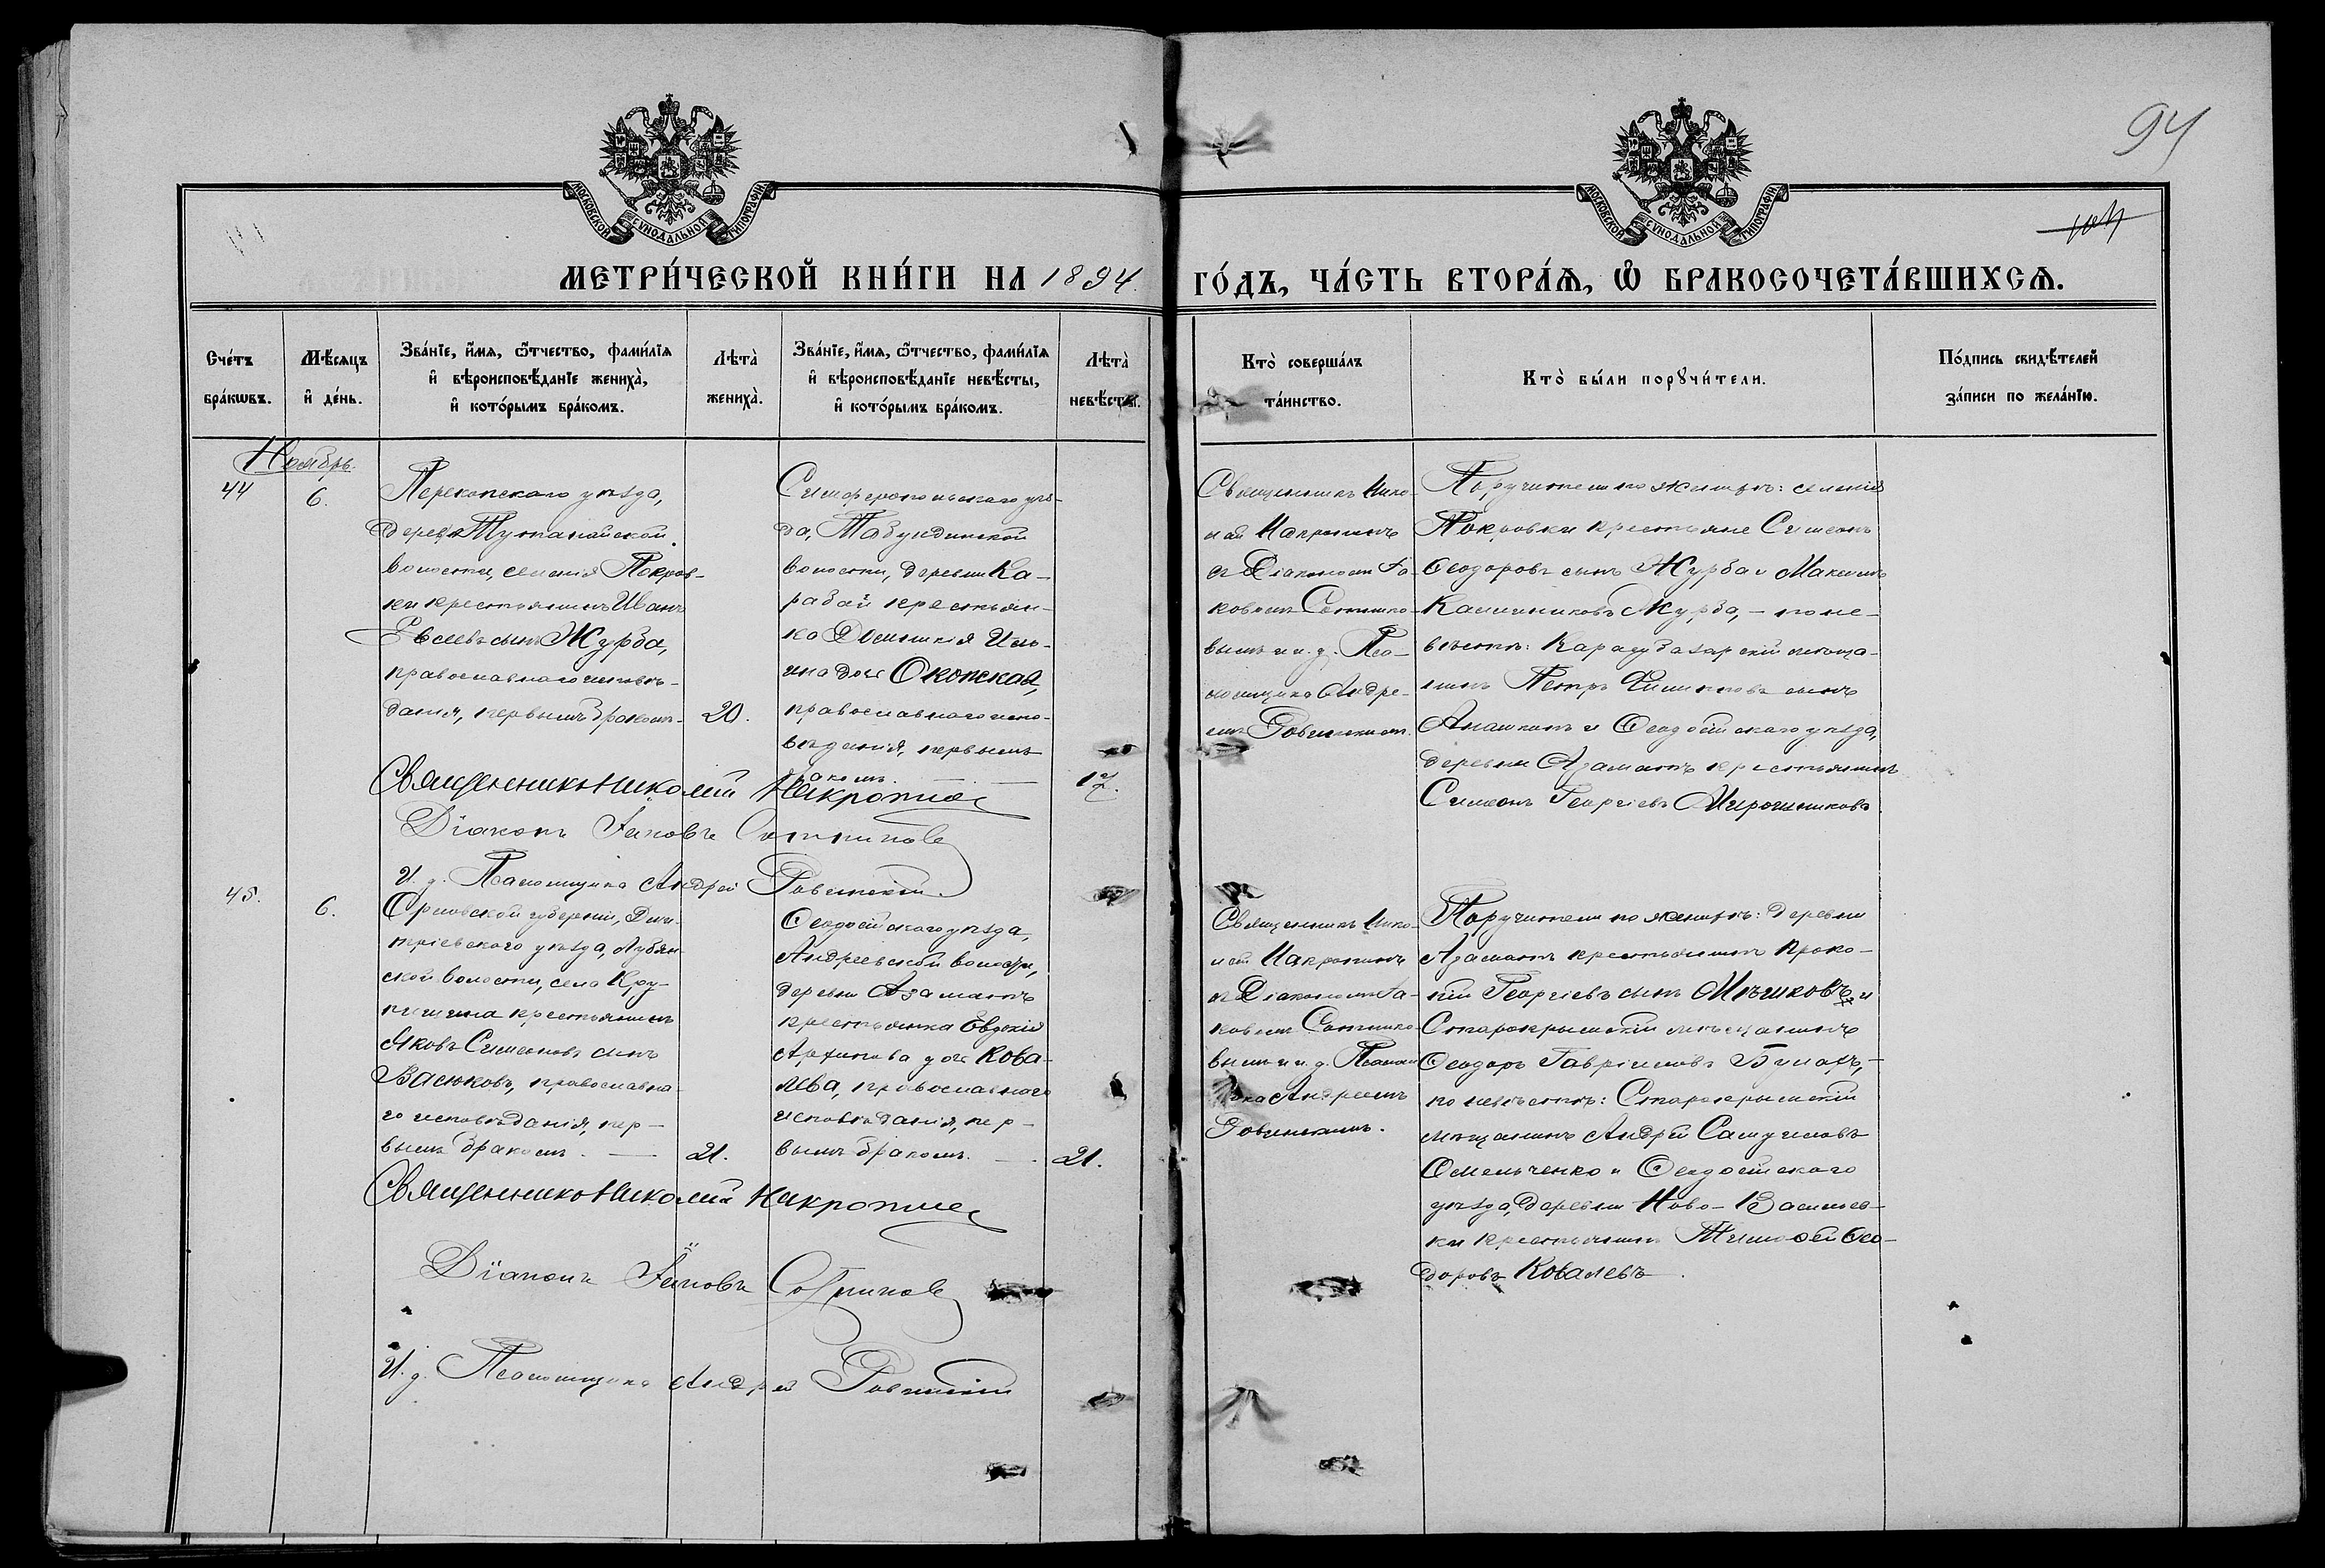 94
104
МОСКОВСКОЙ СѴНОДАЛЬНОЙ ТИПОГРАФІИ
МОСКОВСКОЙ СѴНОДАЛЬНОЙ ТИПОГРАФІИ
МЕТРИ́ЧЕСКОЙ КНИ́ГИ НА 1894 ГО́ДЪ, ЧА́СТЬ ВТОРА́Ѧ, Ѽ БРАКОСОЧЕТА́ВШИХСѦ.
Сче́тъ
бра́кѡвъ.
Мѣ́сяцъ
и҆ де́нь.
Зва́нїе, и҆́мѧ, ѻ҆́тчество, фами́лїѧ
и҆ вѣроисповѣ́данїе жениха̀,
и҆ кото́рымъ бра́комъ.
Лѣта̀
жениха̀.
Зва́нїе, и҆́мѧ, ѻ҆́тчество, фами́лїѧ
и҆ вѣроисповѣ́данїе невѣ́сты,
и҆ кото́рымъ бра́комъ.
Лѣта̀
невѣ́сты.
Кто̀ соверша́лъ
та́инство.
Кто̀ бы́ли порꙋчи́тели.
По́дпись свидѣ́телей
за́писи по жела́нїю.
Ноябрь
44
6.
Перекопскаго уѣзда,
Тутанайской
волости, селенія Покров-
ки крестьянинъ Иванъ
сынъ Журба,
православнаго исповѣ-
данія, первымъ бракомъ
20.
Симферопольскаго уѣз-
да, Табулдинской
волости, деревни Ка-
рабай крестьян-
ка Иль-
ина дочь Окопская,
православнаго испо-
вѣданія, первымъ
бракомъ.
17.
Священникъ Нико-
лай Макротинъ
съ Діакономъ Іа-
ковомъ Сотнико-
вымъ и и. д. Пса-
ломщика Андре-
емъ Ровинскимъ.
Поручители по женихѣ: селенія
Покровки крестьяне Симеонъ
Ѳеодоровъ сынъ Журба и Максимъ
Калинниковъ Журба, - по не-
вѣстѣ: Карасубазарскій мѣща-
нинъ Петръ Филипповъ сынъ
Анашкинъ и Ѳеодосійскаго уѣзда,
деревни Азаматъ крестьянинъ
Симеонъ Георгіевъ Мирошниковъ.
Священникъ Николай Макротин
Діаконъ Іаковъ Сотниковъ
И. д. Псаломщика Андрей Ровинскій.
45.
6.
Орловской губерніи, Дми-
тріевскаго уѣзда, Лубян-
ской волости, села Кру-
пышина крестьянинъ
Яковъ Симеоновъ сынъ
Васюковъ, православна-
го исповѣданія, пер-
вымъ бракомъ.
21.
Ѳеодосійскаго уѣзда,
Андреевской волости,
деревни Азаматъ
крестьянка Евдокія
Архипова дочь Кова-
лева, православнаго
исповѣданія, пер-
вымъ бракомъ.
21.
Священникъ Нико-
лай Макротинъ
съ Діакономъ Іа-
ковомъ Сотнико-
вымъ и и. д. Псалом-
щика Андреемъ
Ровинскимъ.
Поручители по женихѣ: деревни
Азаматъ крестьянинъ Проко-
пій Георгіевъ сынъ Мѣшковъ и
Старокрымскій мѣщанинъ
Ѳеодоръ Гавріиловъ Булахъ, -
по невѣстѣ: Старокрымскій
мѣщанинъ Андрей Самуиловъ
Омельченко и Ѳеодосійскаго
уѣзда, деревни Ново-Васильев-
ки крестьянинъ Тимоѳей Ѳео-
доровъ Ковалевъ.
Священникъ Николай Макротин
Діаконъ Іаковъ Сотниковъ
И. д. Псаломщика Андрей Ровинскій